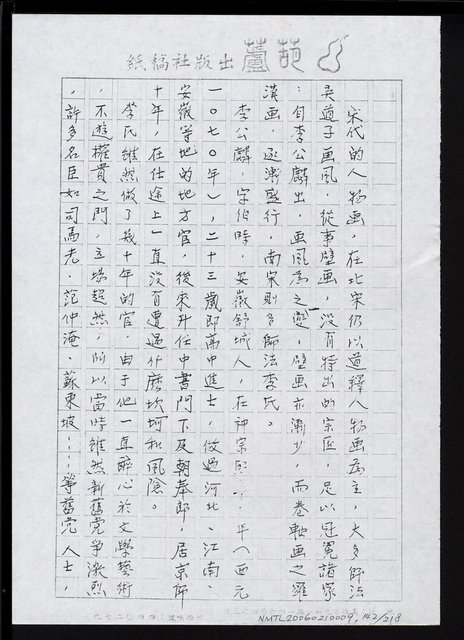 葫蘆出版社稿紙
宋代的人物画，在北宋仍以道釋人物画為主，大多師法
吳道子画風，從事壁画，没有特出的宗匠，足以冠冕諸家
：自李公麟出，画風為之变，壁画亦漸少，而卷軸画之羅
漢画，逐漸盛行，南宋則多師法李氏。
李公麟，字伯時，安徽舒城人，在神宗熙 年（西元
一〇七〇年），二十三歲即高中進士，做過河北、江南、
安徽等地的地方官，後來升任中書門下及朝奉郎，居京師
十年，在仕途上一直没有遭遇什麽坎坷和風險。
李氏雖然做了幾十年的官，由于他一直醉心於文學藝術
，不遊權貴之門，立場超然，所以當時雖然新舊党爭激烈
，許多名臣如司馬光、范仲淹、蘇東坡……等舊党人士，
NMTL20060210009, 142/218